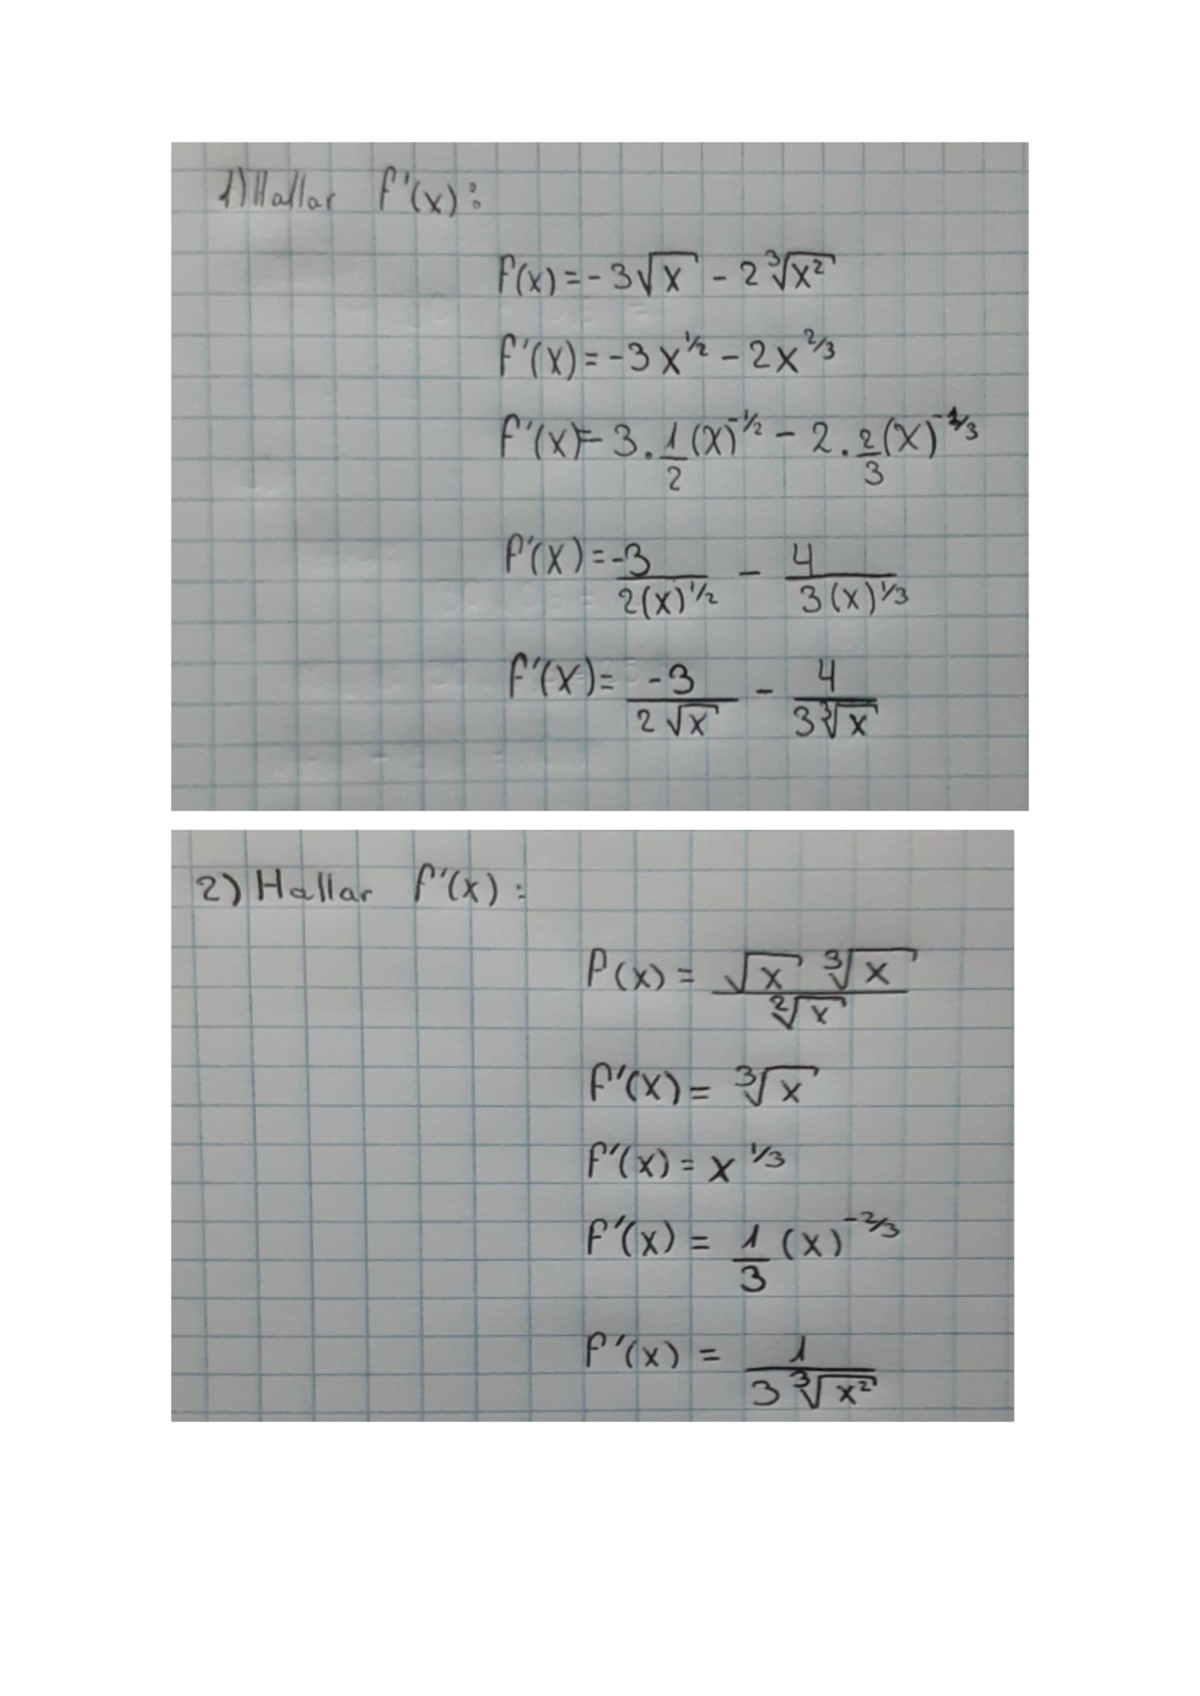 1) Hallar f'(x):
f(x) = -3√x - 2∛x²
f'(x) = -3x^1/2 - 2x^2/3
f'(x) = -3 · 1/2 (x)^-1/2 - 2 · 2/3 (x)^-1/3
f'(x) = -3/2(x)^1/2 - 4/3(x)^1/3
f'(x) = -3/2√x - 4/3∛x
2) Hallar f'(x):
f(x) = √x ∛x / ²√x
f'(x) = ∛x
f'(x) = x^1/3
f'(x) = 1/3 (x)^-2/3
f'(x) = 1/3∛x²